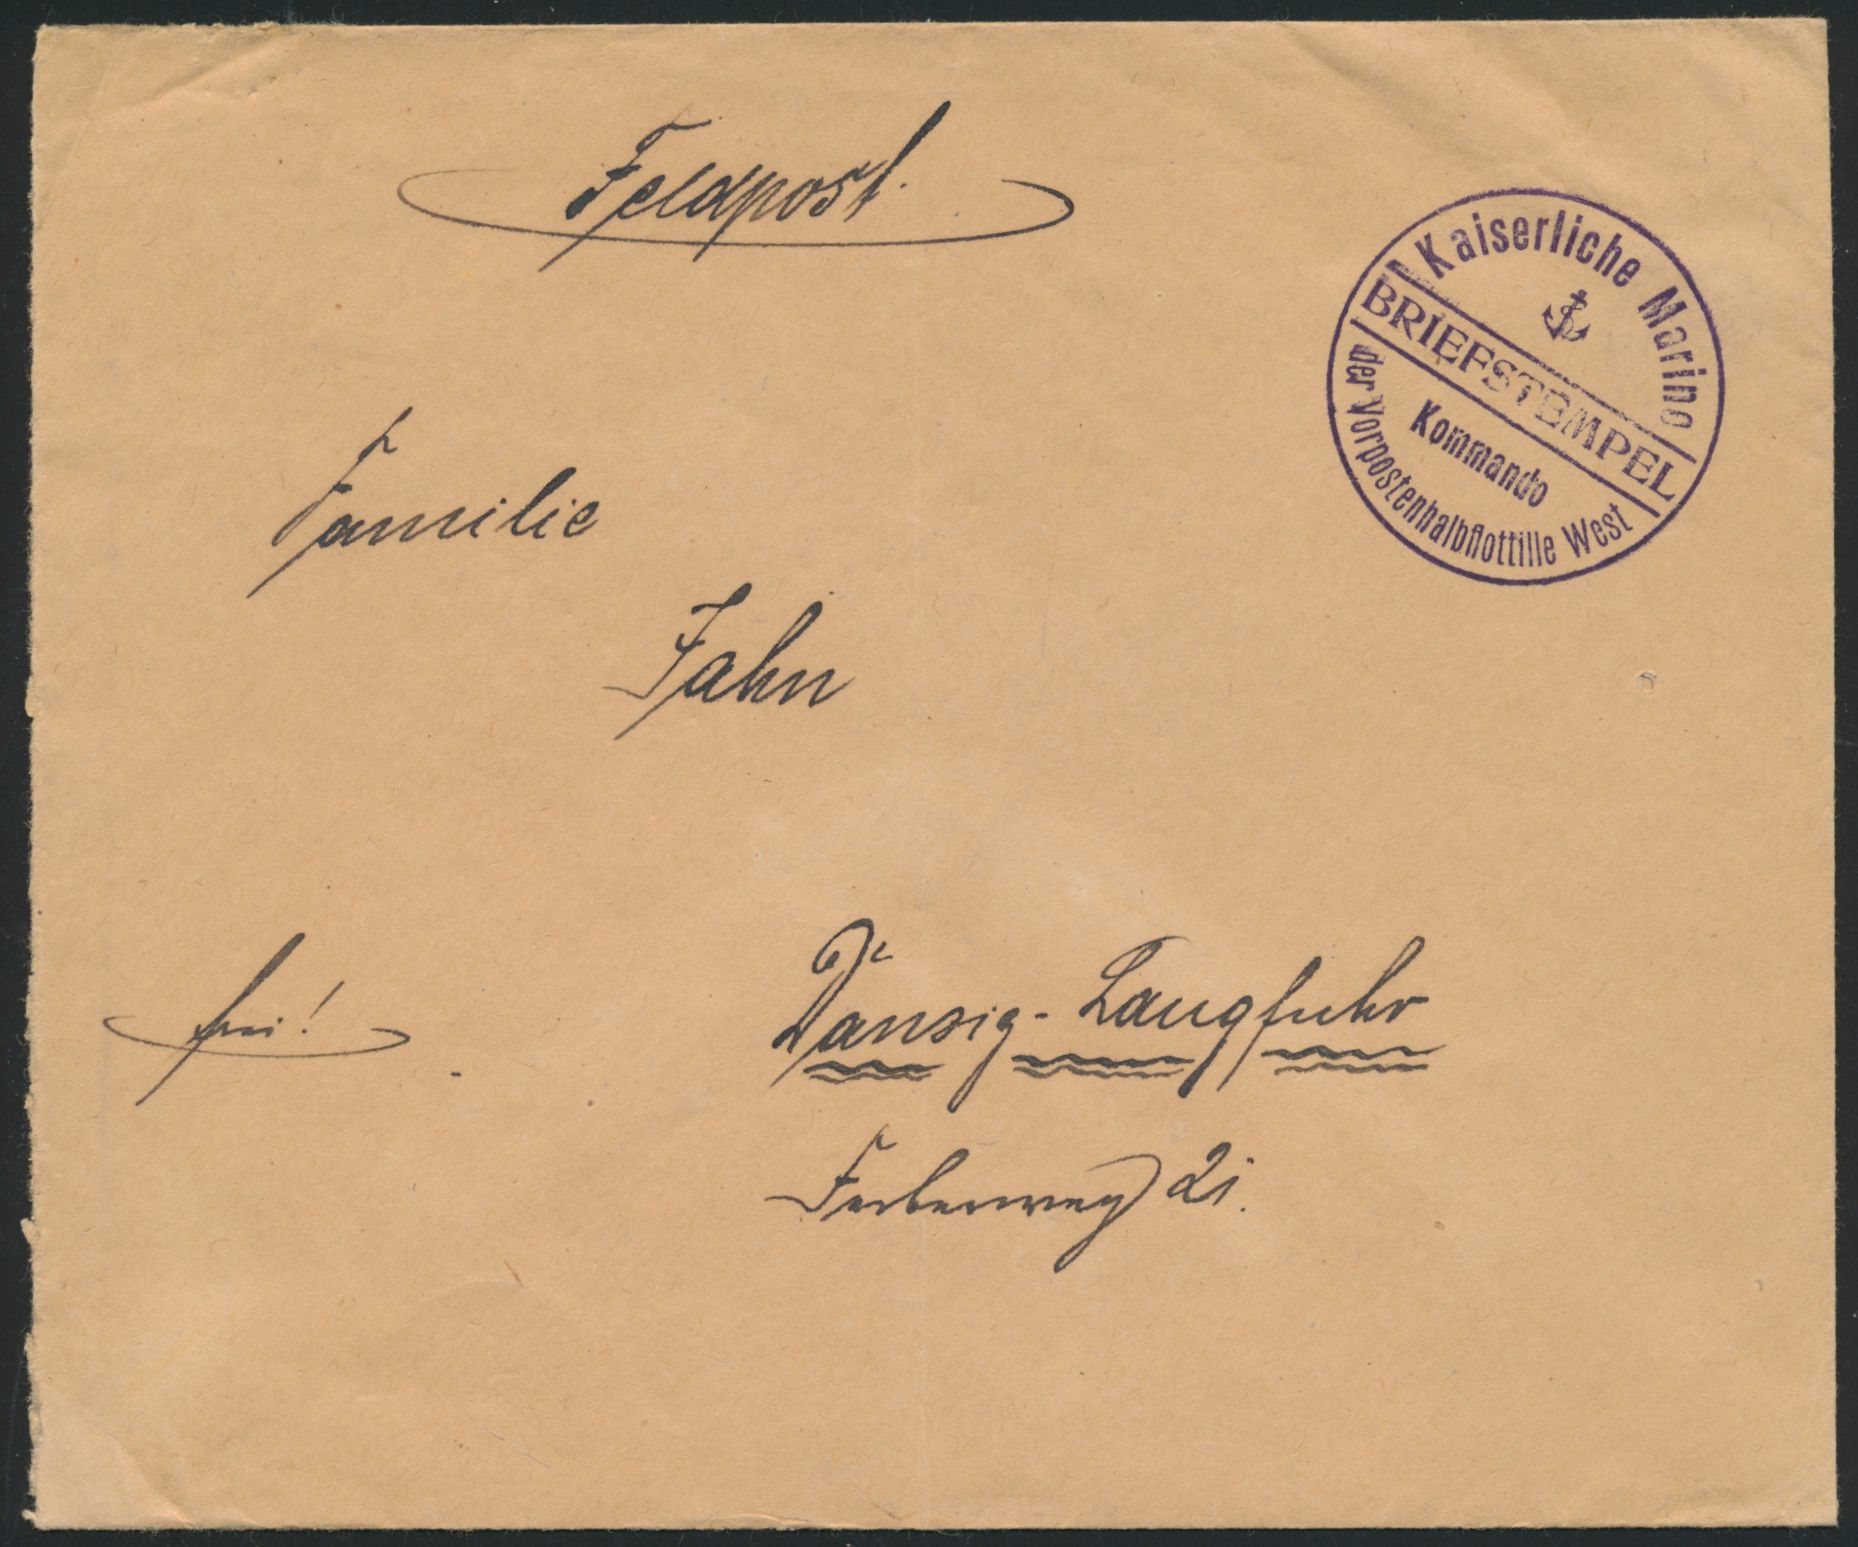 Feldpost.
Kaiserliche Marine
BRIEFSTEMPEL
Kommando
der Vorpostenhalbflottille West
Familie
Jahn
frei!
Danzig-Langfuhr
Ferberweg 21.